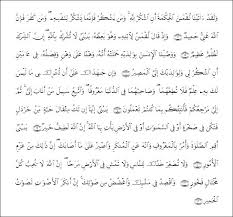 وَلَقَدْ ءَاتَيْنَا لُقْمَٰنَ ٱلْحِكْمَةَ أَنِ ٱشْكُرْ لِلَّهِ وَمَن يَشْكُرْ فَإِنَّمَا يَشْكُرُ لِنَفْسِهِۦ وَمَن كَفَرَ فَإِنَّ
ٱللَّهَ غَنِيٌّ حَمِيدٌ وَإِذْ قَالَ لُقْمَٰنُ لِٱبْنِهِۦ وَهُوَ يَعِظُهُۥ يَٰبُنَيَّ لَا تُشْرِكْ بِٱللَّهِ إِنَّ ٱلشِّرْكَ
لَظُلْمٌ عَظِيمٌ وَوَصَّيْنَا ٱلْإِنسَٰنَ بِوَٰلِدَيْهِ حَمَلَتْهُ أُمُّهُۥ وَهْنًا عَلَىٰ وَهْنٍ وَفِصَٰلُهُۥ فِى عَامَيْنِ
أَنِ ٱشْكُرْ لِى وَلِوَٰلِدَيْكَ إِلَىَّ ٱلْمَصِيرُ وَإِن جَٰهَدَاكَ عَلَىٰٓ أَن تُشْرِكَ بِى مَا لَيْسَ
لَكَ بِهِۦ عِلْمٌ فَلَا تُطِعْهُمَا وَصَاحِبْهُمَا فِى ٱلدُّنْيَا مَعْرُوفًا وَٱتَّبِعْ سَبِيلَ مَنْ أَنَابَ إِلَىَّ ثُمَّ
إِلَىَّ مَرْجِعُكُمْ فَأُنَبِّئُكُم بِمَا كُنتُمْ تَعْمَلُونَ يَٰبُنَىَّ إِنَّهَآ إِن تَكُ مِثْقَالَ حَبَّةٍ مِّنْ خَرْدَلٍ
فَتَكُن فِى صَخْرَةٍ أَوْ فِى ٱلسَّمَٰوَٰتِ أَوْ فِى ٱلْأَرْضِ يَأْتِ بِهَا ٱللَّهُ إِنَّ ٱللَّهَ لَطِيفٌ خَبِيرٌ يَٰبُنَىَّ
أَقِمِ ٱلصَّلَوٰةَ وَأْمُرْ بِٱلْمَعْرُوفِ وَٱنْهَ عَنِ ٱلْمُنكَرِ وَٱصْبِرْ عَلَىٰ مَآ أَصَابَكَ إِنَّ ذَٰلِكَ مِنْ عَزْمِ
ٱلْأُمُورِ وَلَا تُصَعِّرْ خَدَّكَ لِلنَّاسِ وَلَا تَمْشِ فِى ٱلْأَرْضِ مَرَحًا إِنَّ ٱللَّهَ لَا يُحِبُّ كُلَّ
مُخْتَالٍ فَخُورٍ وَٱقْصِدْ فِى مَشْيِكَ وَٱغْضُضْ مِن صَوْتِكَ إِنَّ أَنكَرَ ٱلْأَصْوَٰتِ لَصَوْتُ